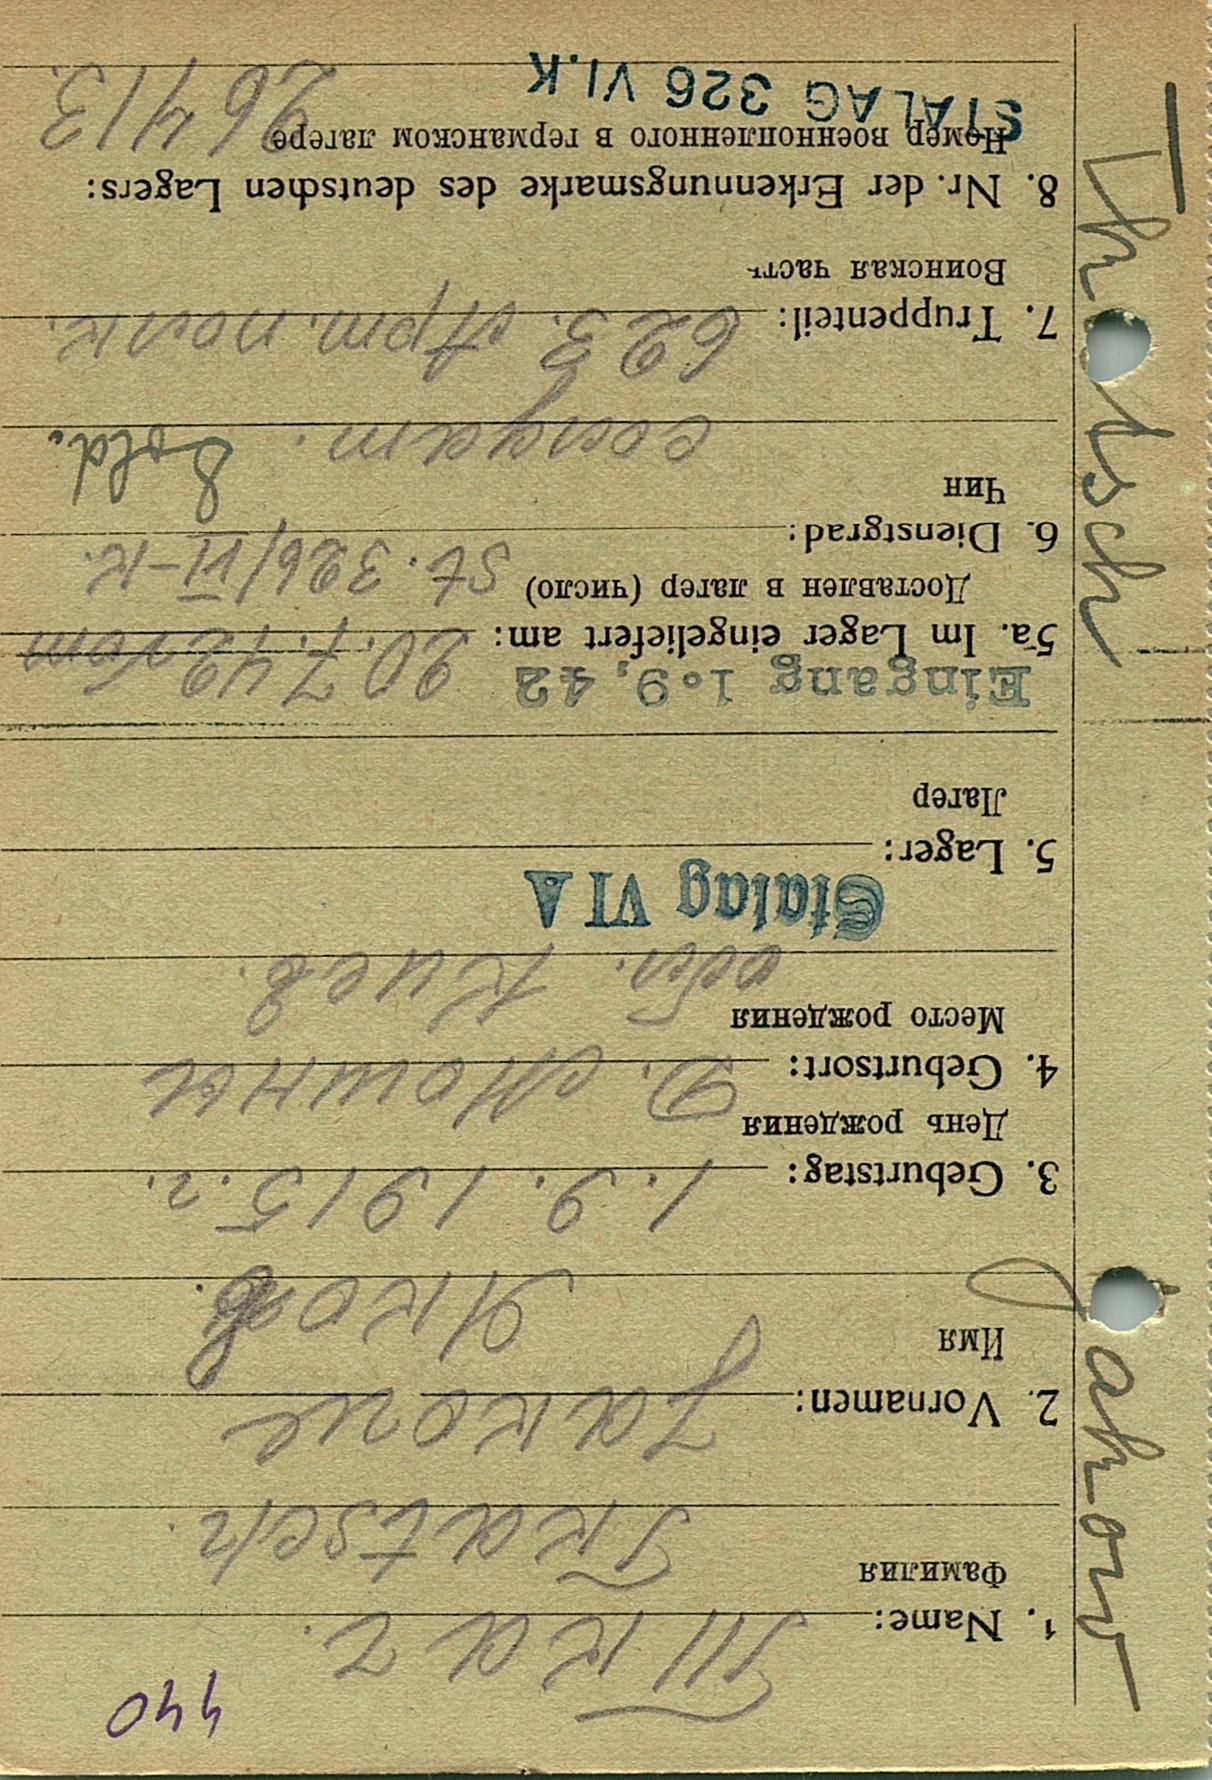 440
1. Name: Ткач.
Фамилия Tkatsch.
2. Vornamen: Jakow
Имя Яков.
3. Geburtstag: 1.9.1915.г.
День рождения
4. Geburtsort: Д. Мошны
Место рождения
обл. Киев.
Stalag VI A
5. Lager:
Лагер
Eingang 1.9.42
5a. Im Lager eingeliefert am: 20.7.42 vom
Доставлен в лагер (число) St. 326/VI-K.
6. Dienstgrad:
Чин
солдат. Sold.
7. Truppenteil: 623. Арт. полк.
Воинская часть
8. Nr. der Erkennungsmarke des deutschen Lagers:
Номер военнопленного в германском лагере 26413.
STALAG 326 VI.K
Jakow
Tkatsch